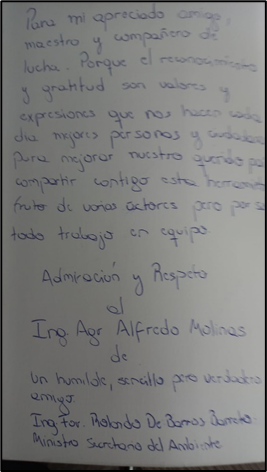 Para mi apreciado amigo,
maestro y compañero de
lucha. Porque el reconocimiento
y gratitud son valores y
expresiones que nos hacen cada
dia mejores personas y ciudadanos
para mejorar nuestro querido
compartir contigo esta
fruto de varios actores pero por
todo trabajo en equipo.
Admiración y Respeto
al
Ing. Agr Alfredo Molinas
de
un humilde, sencillo pero verdadero
amigo
Ing For. Rolando De Barros Barreto
Ministro Secretario del Ambiente